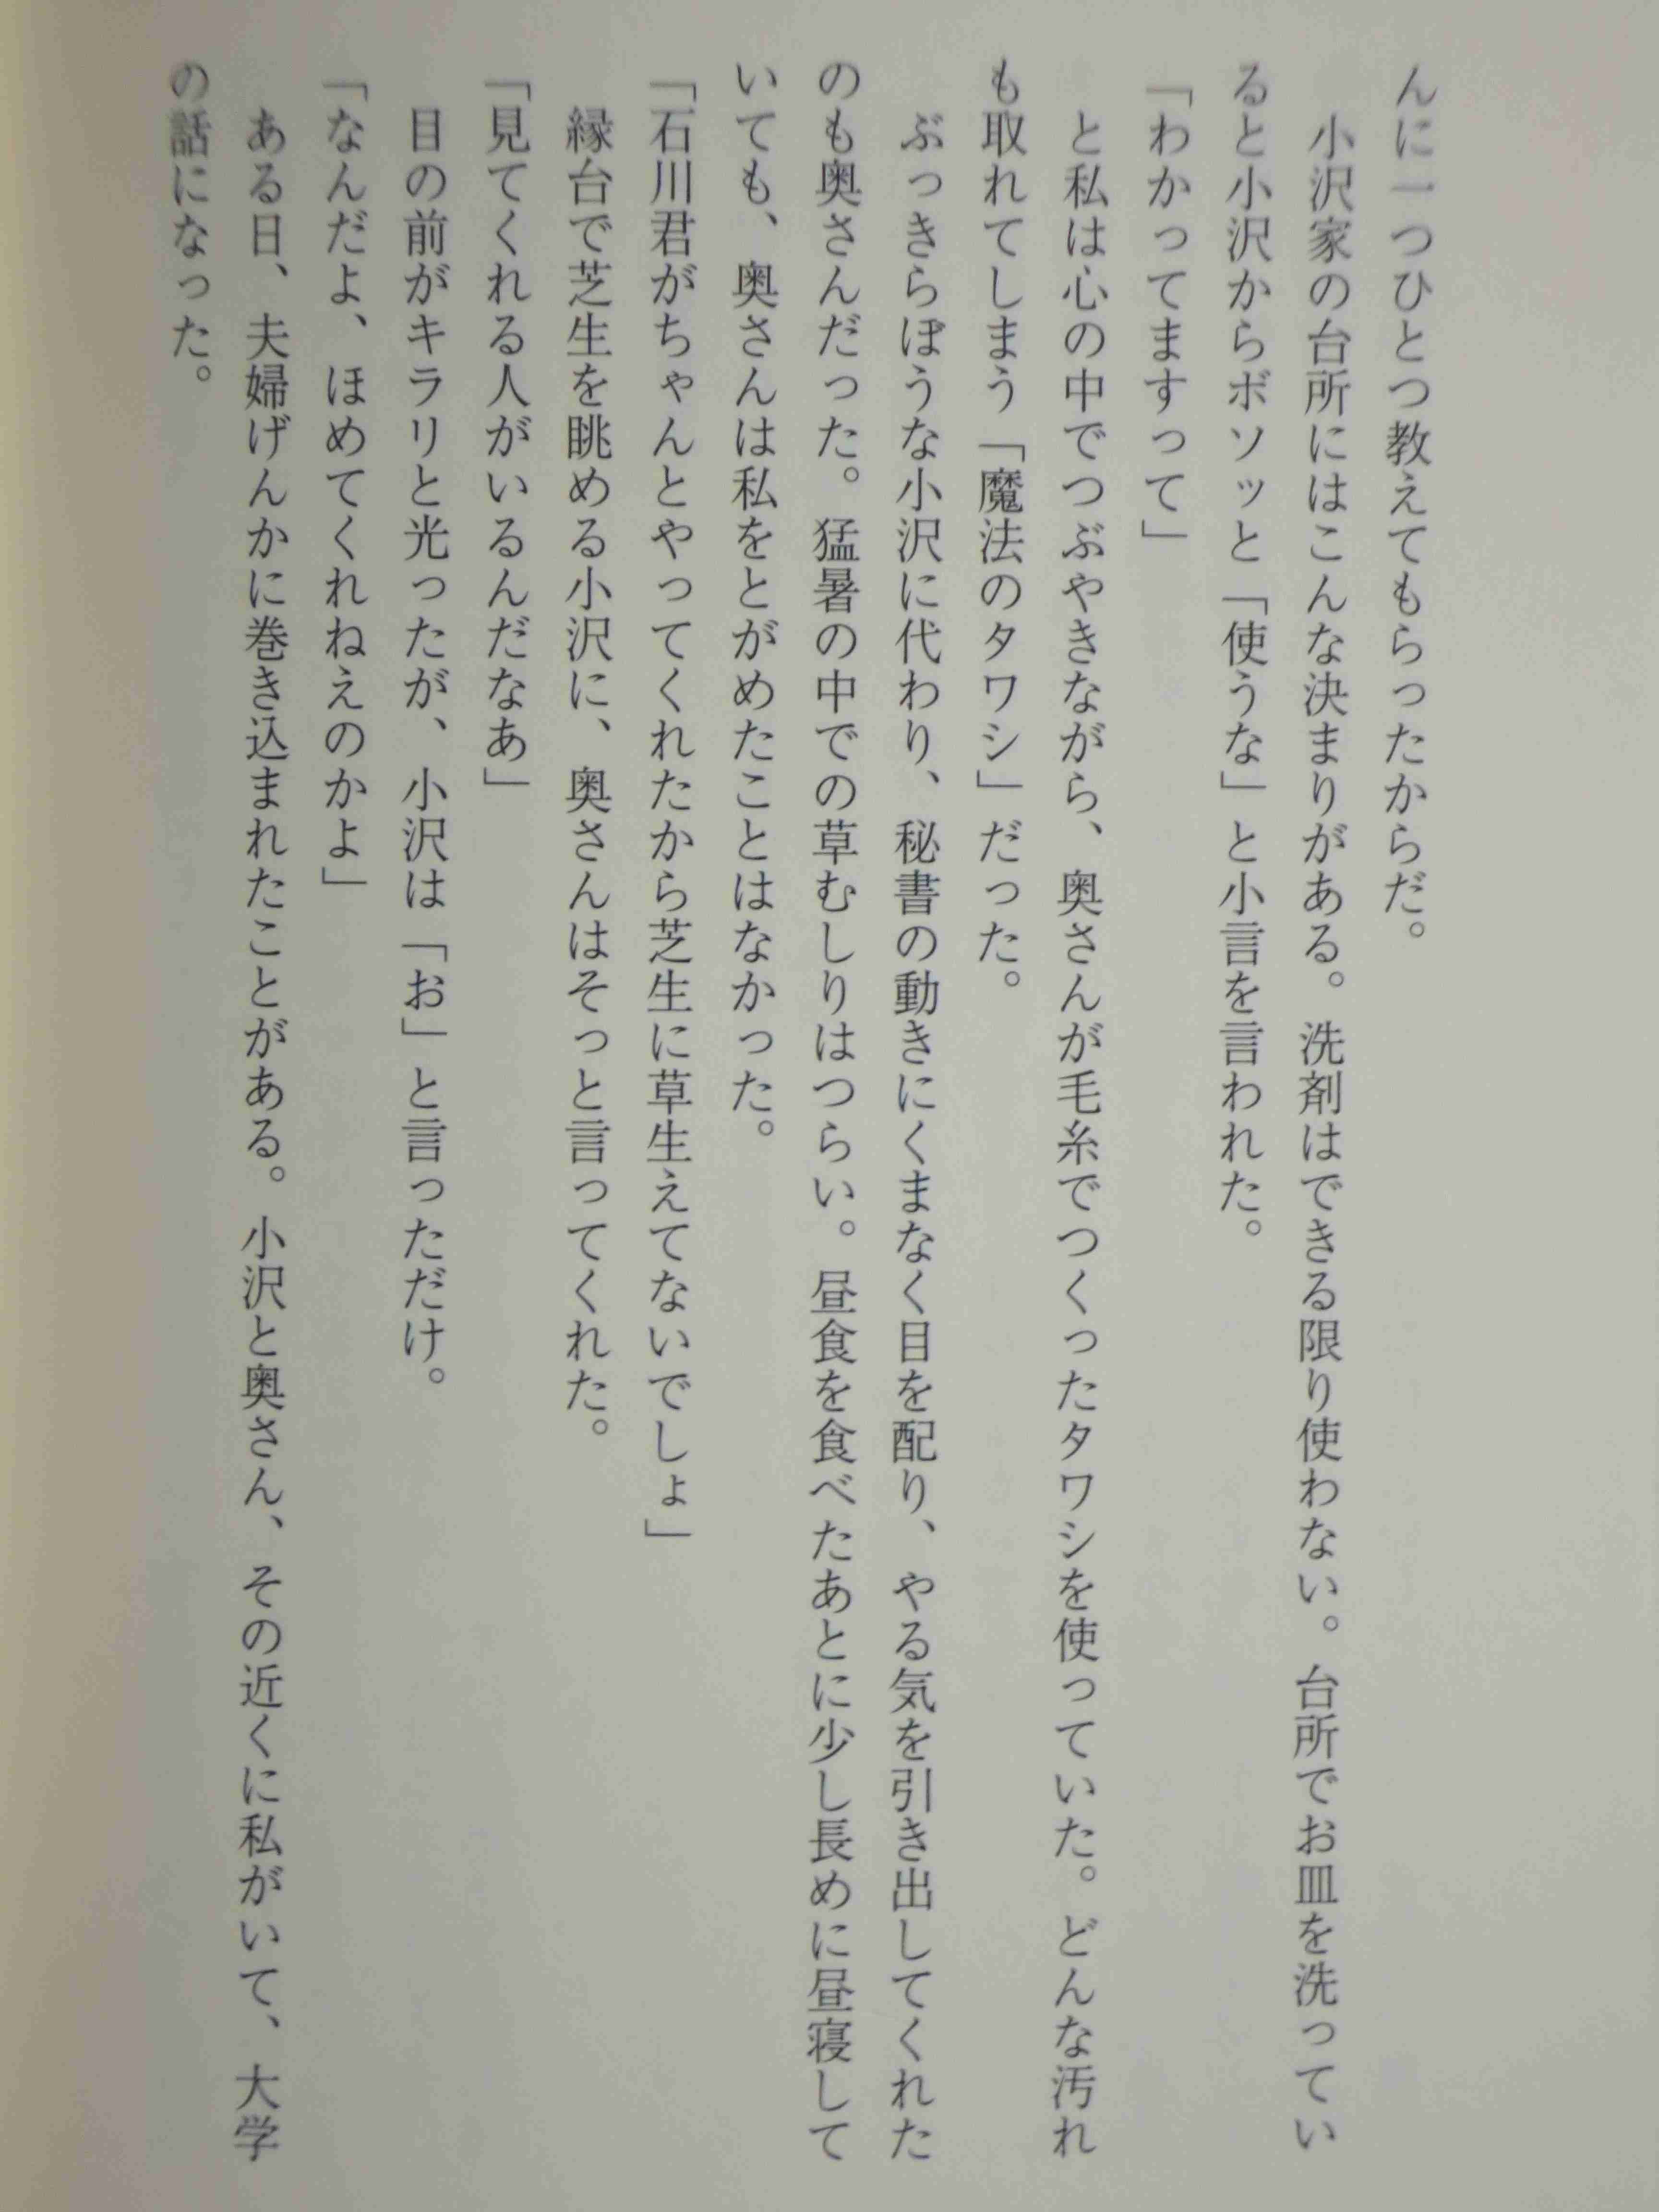 んに一つひとつ教えてもらったからだ。
小沢家の台所にはこんな決まりがある。洗剤はできる限り使わない。台所でお皿を洗ってい
ると小沢からボソッと「使うな」と小言を言われた。
「わかってますって」
と私は心の中でつぶやきながら、奥さんが毛糸でつくったタワシを使っていた。どんな汚れ
も取れてしまう「魔法のタワシ」だった。
ぶっきらぼうな小沢に代わり、秘書の動きにくまなく目を配り、やる気を引き出してくれた
のも奥さんだった。猛暑の中での草むしりはつらい。昼食を食べたあとに少し長めに昼寝して
いても、奥さんは私をとがめたことはなかった。
「石川君がちゃんとやってくれたから芝生に草生えてないでしょ」
縁台で芝生を眺める小沢に、奥さんはそっと言ってくれた。
「見てくれる人がいるんだなあ」
目の前がキラリと光ったが、小沢は「お」と言っただけ。
「なんだよ、ほめてくれねえのかよ」
ある日、夫婦げんかに巻き込まれたことがある。小沢と奥さん、その近くに私がいて、大学
の話になった。